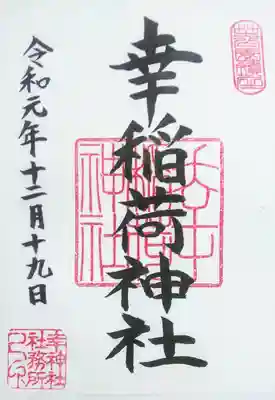 幸稲荷神社
令和元年十二月十九日
幸神社
社務所